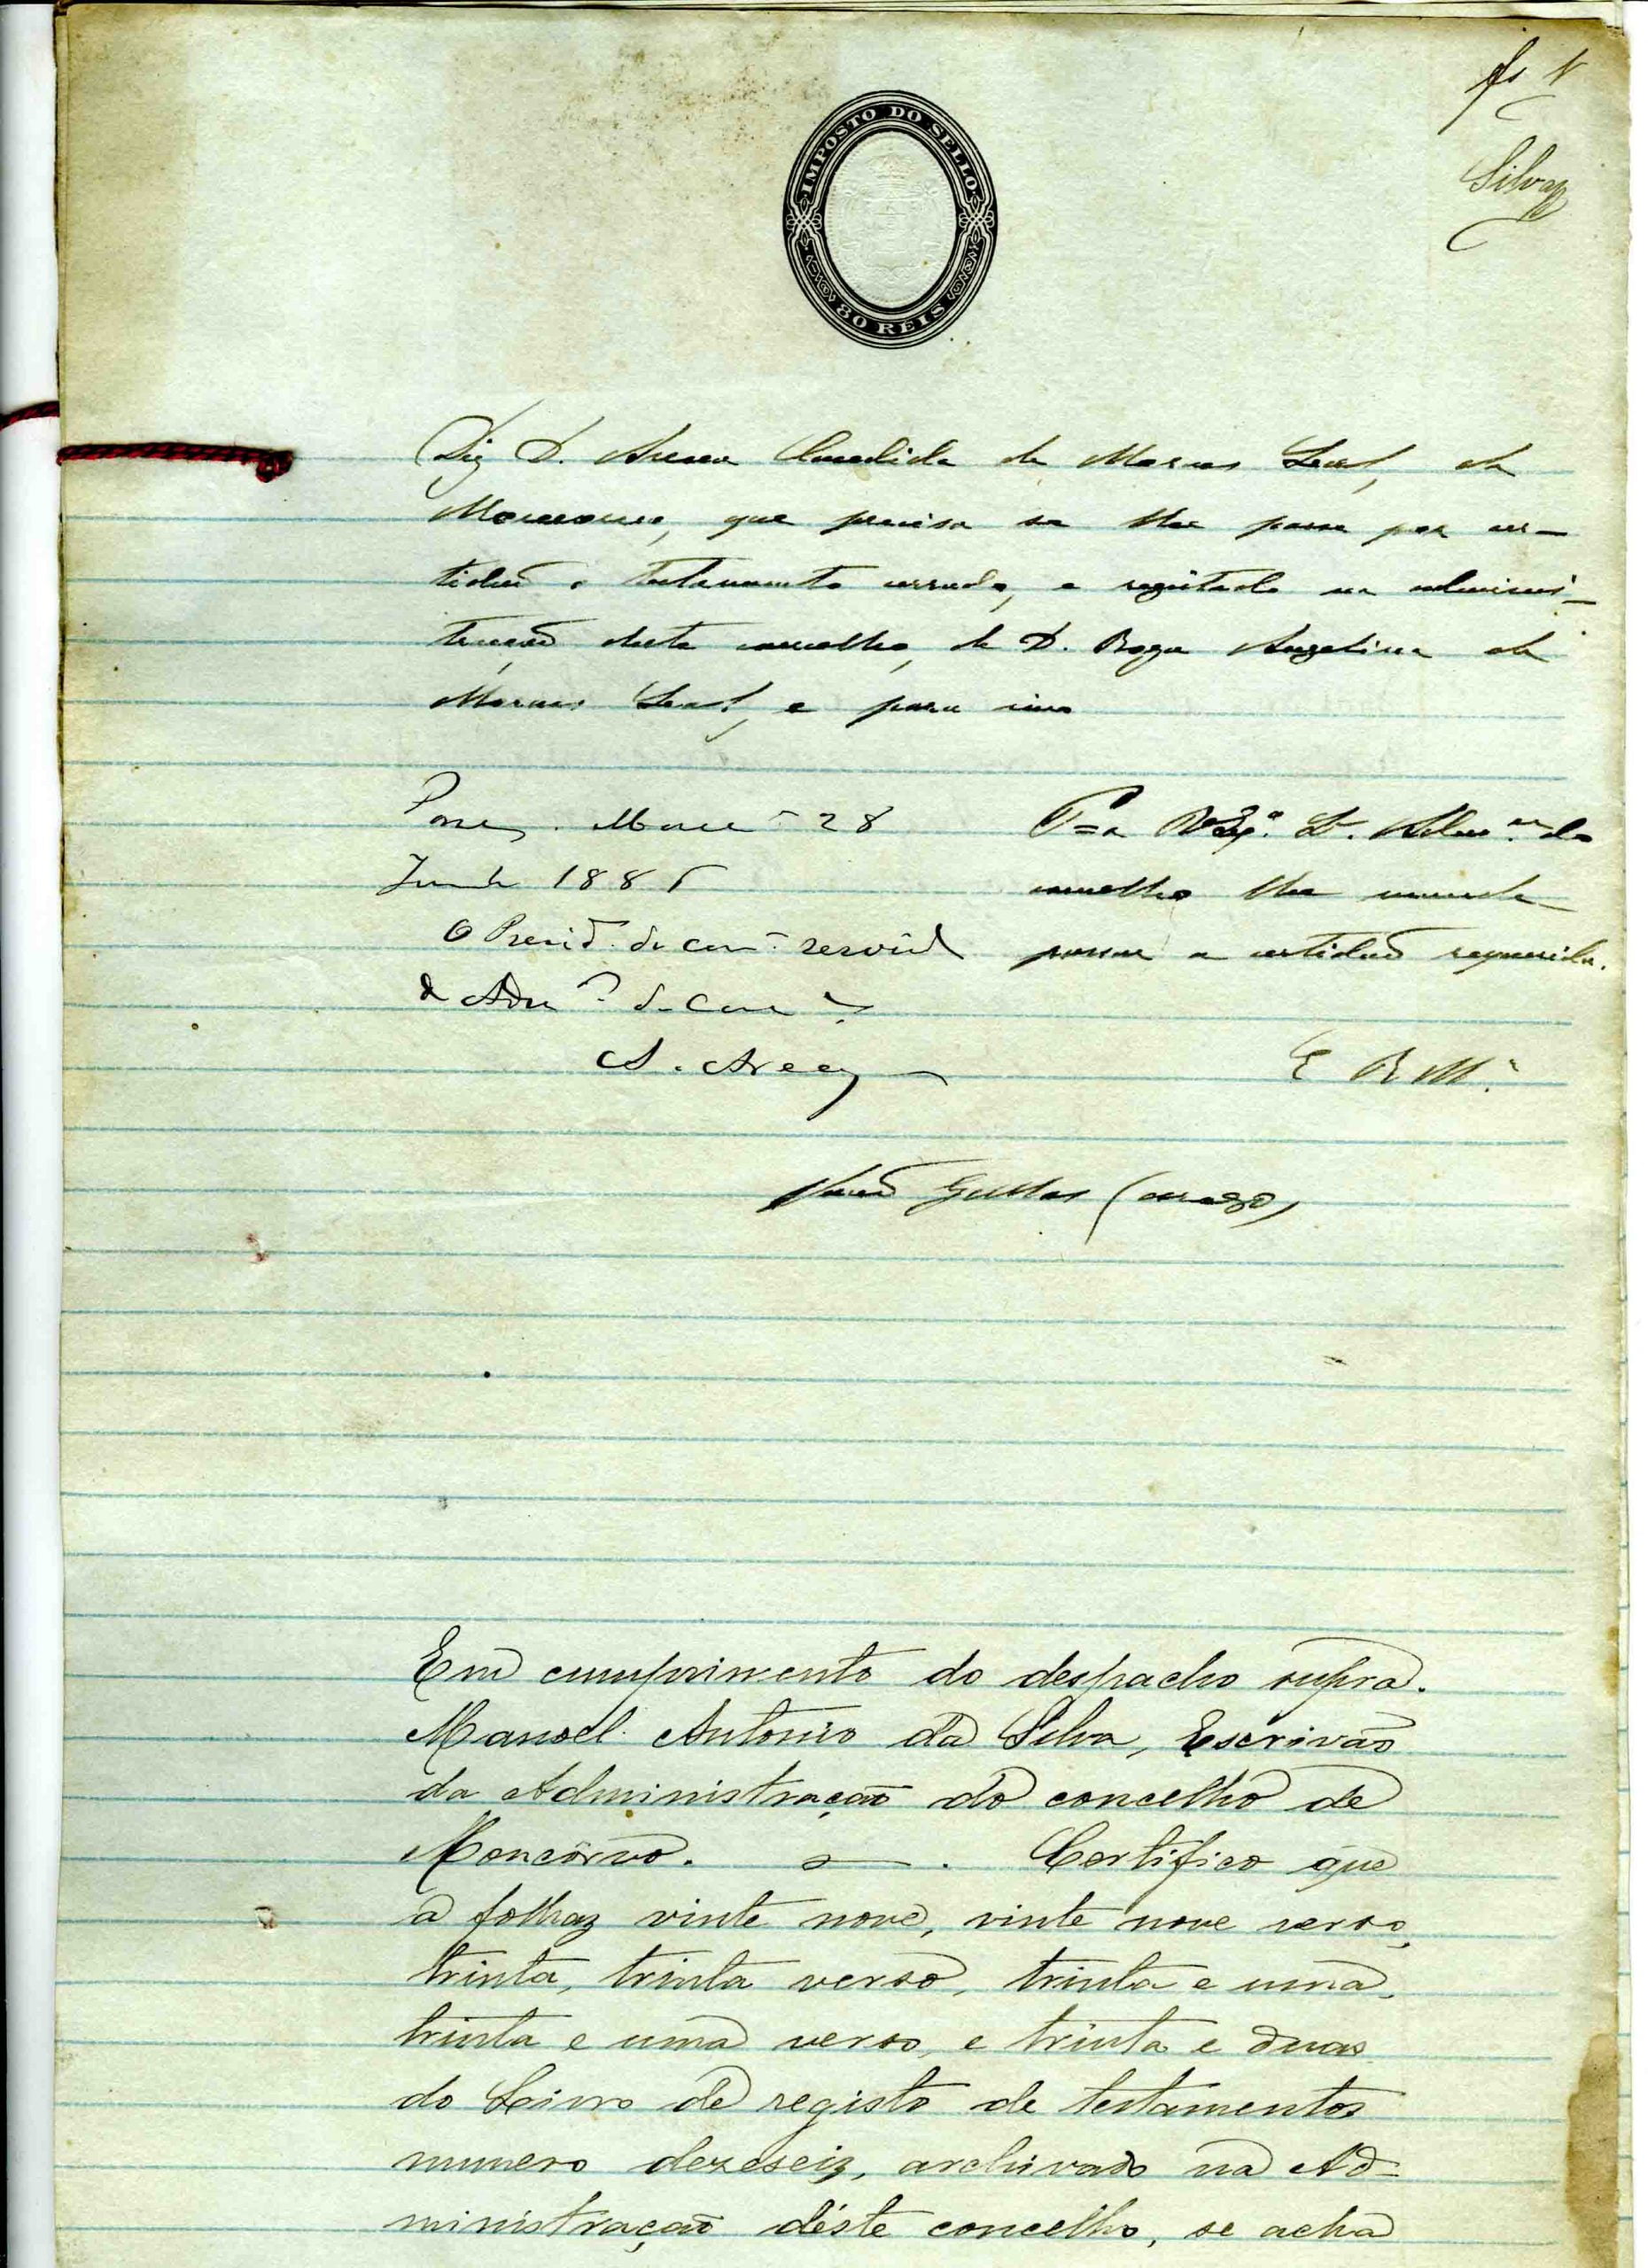 fs 1
Silva
IMPOSTO DO SELLO
80 REIS
Diz D. Anna Candida de Moraes Leal, de
Moncorvo, que precisa se lhe passe por cer-
tidão o testamento cerrado, e registado na adminis-
tração deste concelho, de D. Angelina de
Moraes Leal, e para isso
Passe. Monc.º 28
Junho 188
O Presid. da cam. servind
d Adm.or do Con.º
A.
P. a V. Ex.ª Sr. Adm.or do
concelho lhe mande
passar a certidão requerida.
E R M.cê
João
Em cumprimento do despacho supra.
Manoel Antonio da Silva, Escrivão
da Administração do concelho de
Moncôrvo. Certifico que
a folhaz vinte nove, vinte nove verso,
trinta, trinta verso, trinta e uma,
trinta e uma verso, e trinta e duas
do Livro de registo de testamentos
numero dezeseiz, archivado na Ad-
ministração déste concelho, se acha